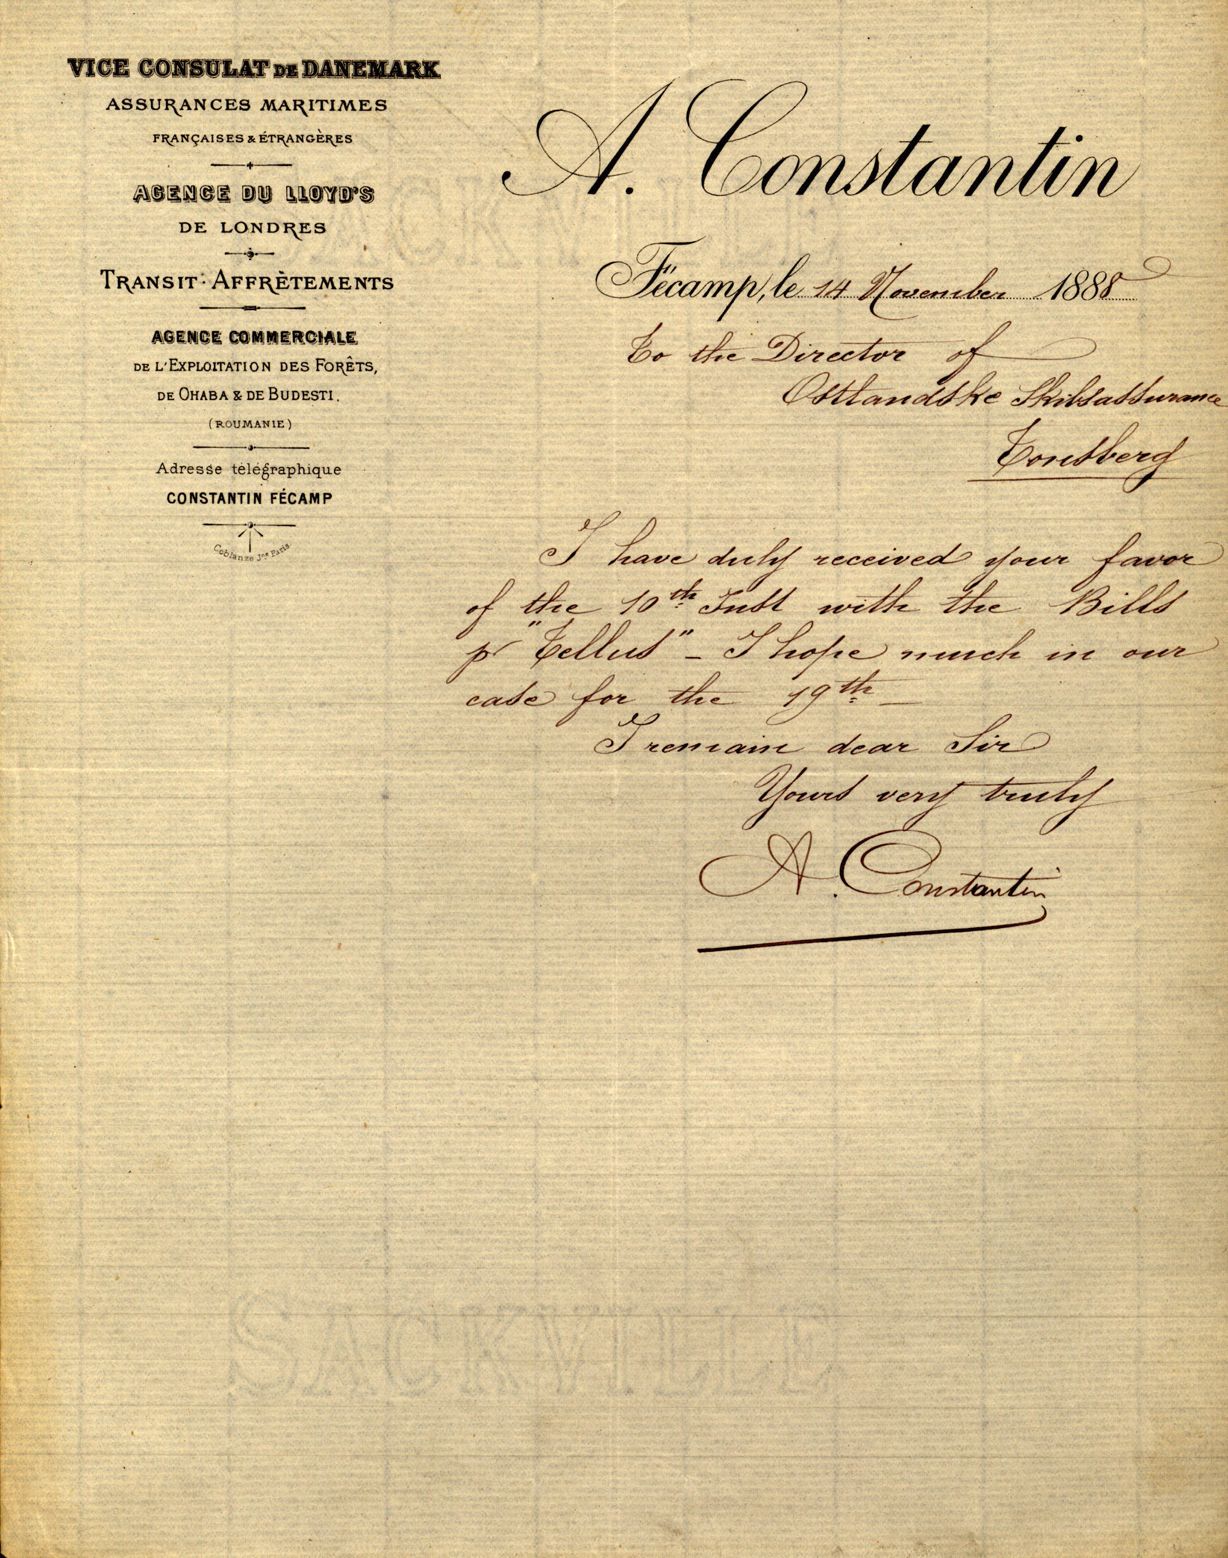 VICE CONSULAT DE DANEMARK
ASSURANCES MARITIMES
FRANÇAISES & ÉTRANGÈRES
AGENCE DU LLOYD'S
DE LONDRES
TRANSIT · AFFRÈTEMENTS
AGENCE COMMERCIALE
DE L'EXPLOITATION DES FORÊTS,
DE OHABA & DE BUDESTI.
(ROUMANIE)
Adresse télégraphique
CONSTANTIN FÉCAMP
Coblanze Jne Paris
A. Constantin
Fécamp, le 14 November 1888
To the Director of
Ostlandske Skibsassurance
Tonsberg
I have duly received your favor
of the 10th Inst with the Bills
pr "Tellus" – I hope much in our
case for the 19th –
I remain dear Sir
Yours very truly
A. Constantin
SACKVILLE
SACKVILLE